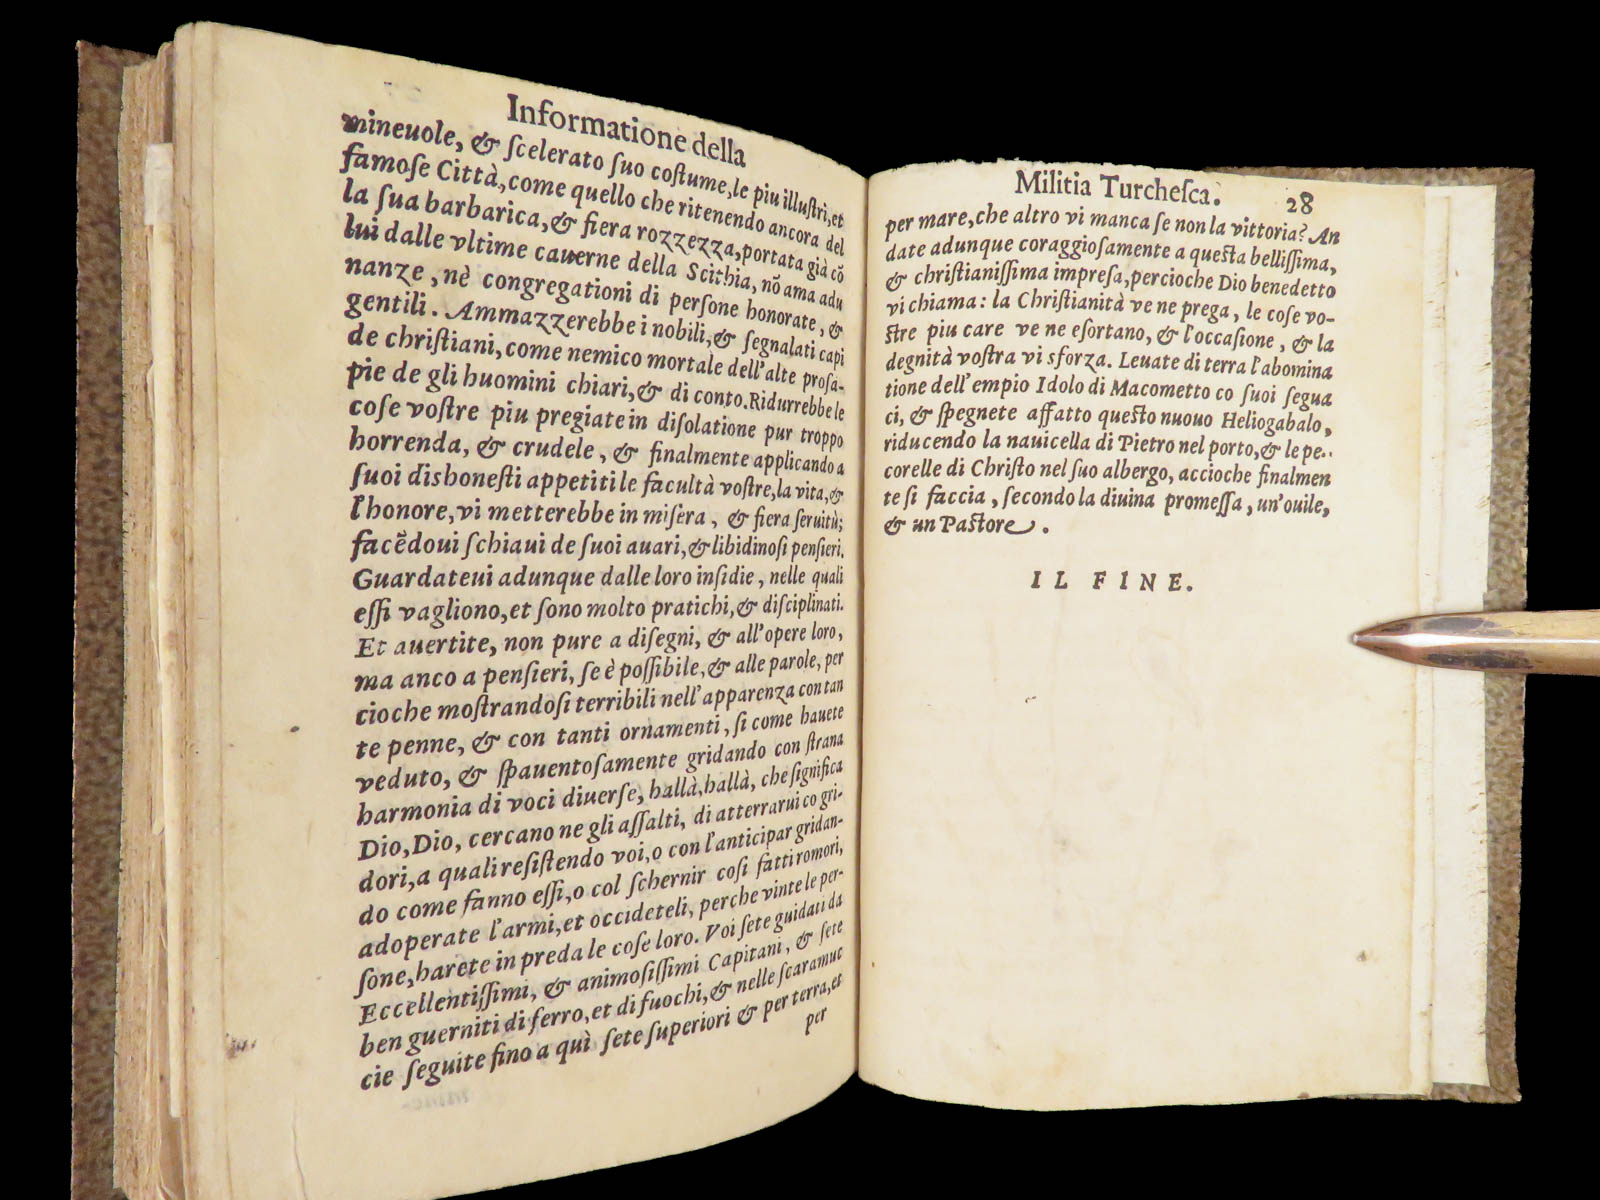 Informatione della
mineuole, & ſcelerato ſuo coſtume, le piu illuſtri, et
famoſe Città, come quello che ritenendo ancora del
la ſua barbarica, & fiera rozzezza, portata già cõ
lui dalle vltime cauerne della Scithia, nõ ama adu
nanze, nè congregationi di perſone honorate, &
gentili. Ammazzerebbe i nobili, & ſegnalati capi
de chriſtiani, come nemico mortale dell'alte proſa-
pie de gli huomini chiari, & di conto. Ridurrebbe le
coſe voſtre piu pregiate in diſolatione pur troppo
horrenda, & crudele, & finalmente applicando a
ſuoi dishoneſti appetiti le facultà voſtre, la vita, &
l'honore, vi metterebbe in miſera, & fiera ſeruitù;
facẽdoui ſchiaui de ſuoi auari, & libidinoſi penſieri.
Guardateui adunque dalle loro inſidie, nelle quali
eſſi vagliono, et ſono molto pratichi, & diſciplinati.
Et auertite, non pure a diſegni, & all'opere loro,
ma anco a penſieri, ſe è poſſibile, & alle parole, per
cioche moſtrandoſi terribili nell'apparenza con tan
te penne, & con tanti ornamenti, ſi come hauete
veduto, & ſpauentoſamente gridando con ſtrana
harmonia di voci diuerſe, hallà, hallà, che ſignifica
Dio, Dio, cercano ne gli aſſalti, di atterrarui co gri-
dori, a quali reſiſtendo voi, o con l'anticipar gridan-
do come fanno eſſi, o col ſchernir coſi fatti romori,
adoperate l'armi, et occideteli, perche vinte le per-
ſone, harete in preda le coſe loro. Voi ſete guidati da
Eccellentiſſimi, & animoſiſſimi Capitani, & ſete
ben guerniti di ferro, et di fuochi, & nelle ſcaramuc
cie ſeguite fino a quì ſete ſuperiori & per terra, et
per
Militia Turcheſca. 28
per mare, che altro vi manca ſe non la vittoria? An
date adunque coraggioſamente a queſta belliſſima,
& chriſtianiſſima impreſa, percioche Dio benedetto
vi chiama: la Chriſtianità ve ne prega, le coſe vo-
ſtre piu care ve ne eſortano, & l'occaſione, & la
degnità voſtra vi sforza. Leuate di terra l'abomina
tione dell'empio Idolo di Macometto co ſuoi ſegua
ci, & ſpegnete affatto queſto nuouo Heliogabalo,
riducendo la nauicella di Pietro nel porto, & le pe-
corelle di Chriſto nel ſuo albergo, accioche finalmen
te ſi faccia, ſecondo la diuina promeſſa, un'ouile,
& un Paſtore.
IL FINE.